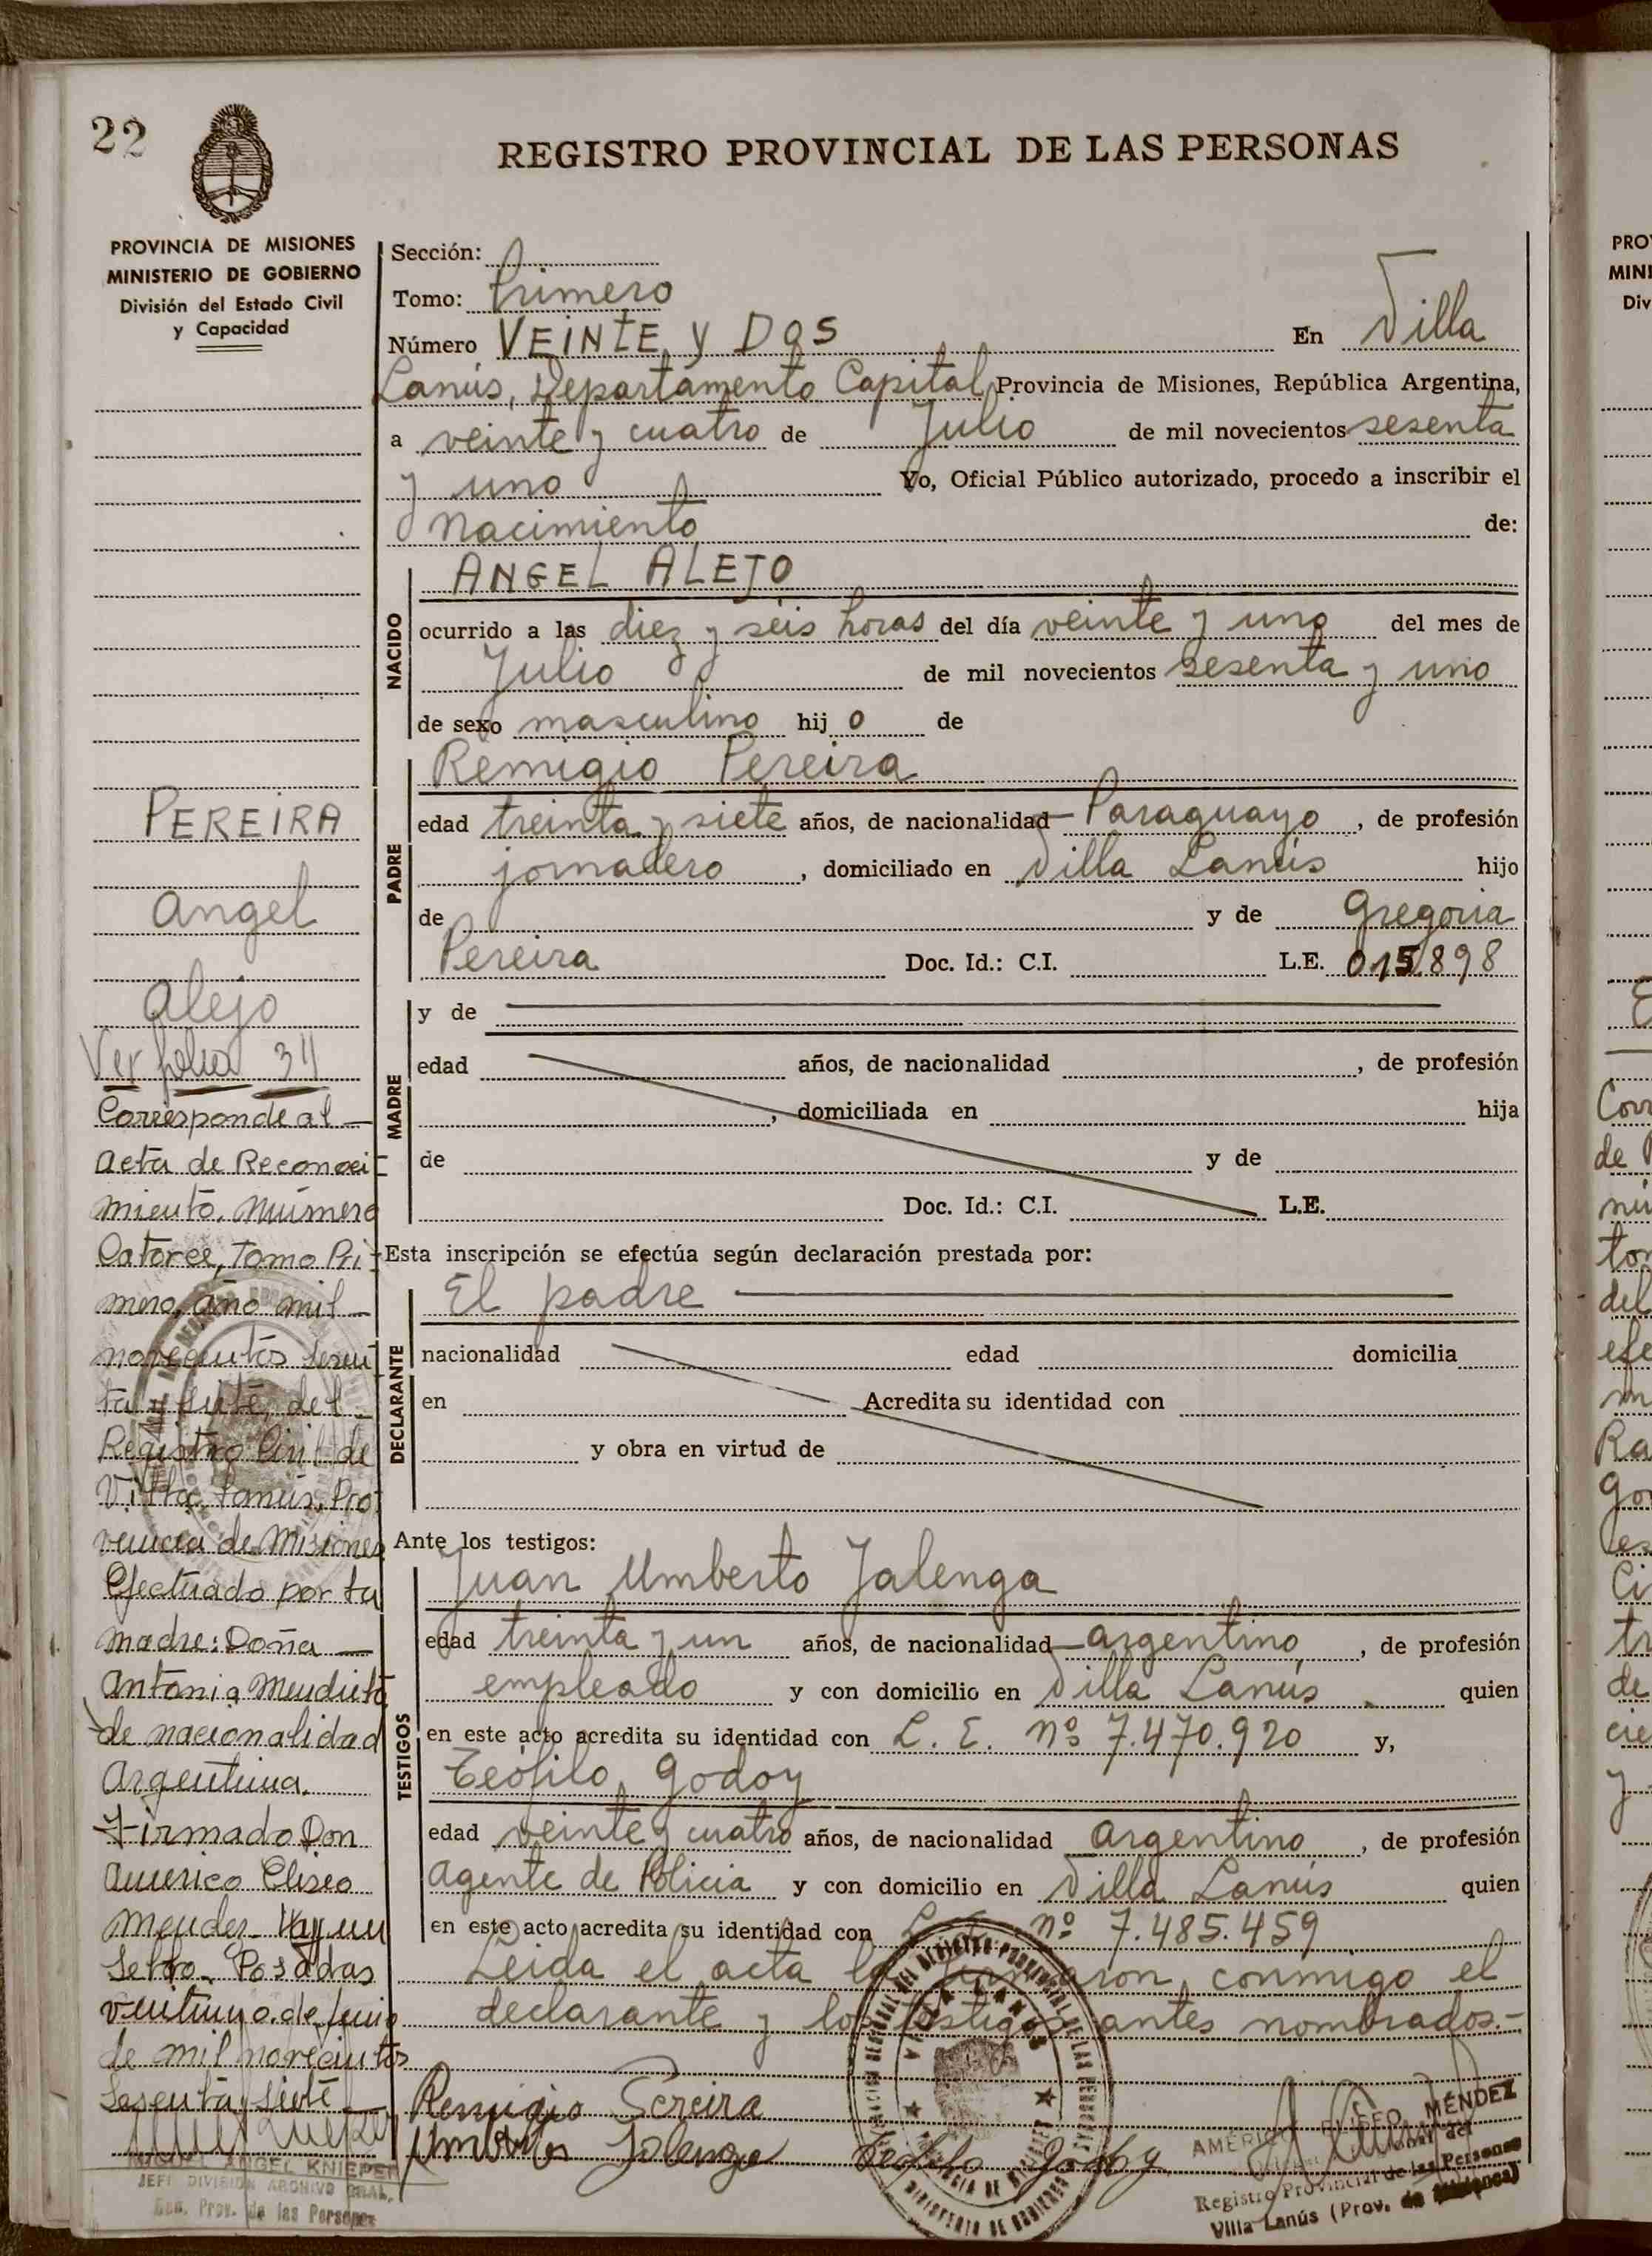 22
REGISTRO PROVINCIAL DE LAS PERSONAS
PROVINCIA DE MISIONES
MINISTERIO DE GOBIERNO
División del Estado Civil
y Capacidad
Sección:
Tomo: Primero
Número VEINTE Y DOS En Villa
Lanús, Departamento Capital Provincia de Misiones, República Argentina,
a veinte y cuatro de Julio de mil novecientos sesenta
y uno Yo, Oficial Público autorizado, procedo a inscribir el
Nacimiento de:
NACIDO
ANGEL ALEJO
ocurrido a las diez y seis horas del día veinte y uno del mes de
Julio de mil novecientos sesenta y uno
de sexo masculino hijo de
PADRE
Remigio Pereira
edad treinta y siete años, de nacionalidad Paraguayo, de profesión
jornalero, domiciliado en Villa Lanús hijo
de y de Gregoria
Pereira Doc. Id.: C.I. L.E. 015898
MADRE
y de
edad años, de nacionalidad , de profesión
, domiciliada en hija
de y de
Doc. Id.: C.I. L.E.
Esta inscripción se efectúa según declaración prestada por:
DECLARANTE
El padre
nacionalidad edad domicilia
en Acredita su identidad con
y obra en virtud de
Ante los testigos:
TESTIGOS
Juan Umberto Jalenga
edad treinta y un años, de nacionalidad argentino, de profesión
empleado y con domicilio en Villa Lanús quien
en este acto acredita su identidad con L. E. nº 7.470.920 y,
Teófilo Godoy
edad veinte y cuatro años, de nacionalidad argentino, de profesión
agente de Policia y con domicilio en Villa Lanús quien
en este acto acredita su identidad con nº 7.485.459
Leida el acta la firmaron conmigo el
declarante y los testigos antes nombrados.-
Remigio Pereira
Umberto Jalenga Teofilo Godoy
MÉNDEZ
Registro Provincial de las Personas
Villa Lanús (Prov. de
PEREIRA
Angel
Alejo
Ver folio 34
Corresponde al
Acta de Reconoci
miento, Número
Catorce, Tomo Pri
mero, año mil
novecientos sesen
ta y siete, del
Registro Civil de
Villa Lanús, Pro
vincia de Misiones
Efectuado por la
madre: Doña
Antonia Mendieta
de nacionalidad
Argentina.
Firmado Don
Americo Eliseo
Mendez. Hay un
Sello. Posadas
veintiuno de junio
de mil novecientos
sesenta y siete
MIGUEL ANGEL KNIEPER
JEFE DIVISION ARCHIVO GRAL.
Reg. Prov. de las Personas
PRO
MINI
Div